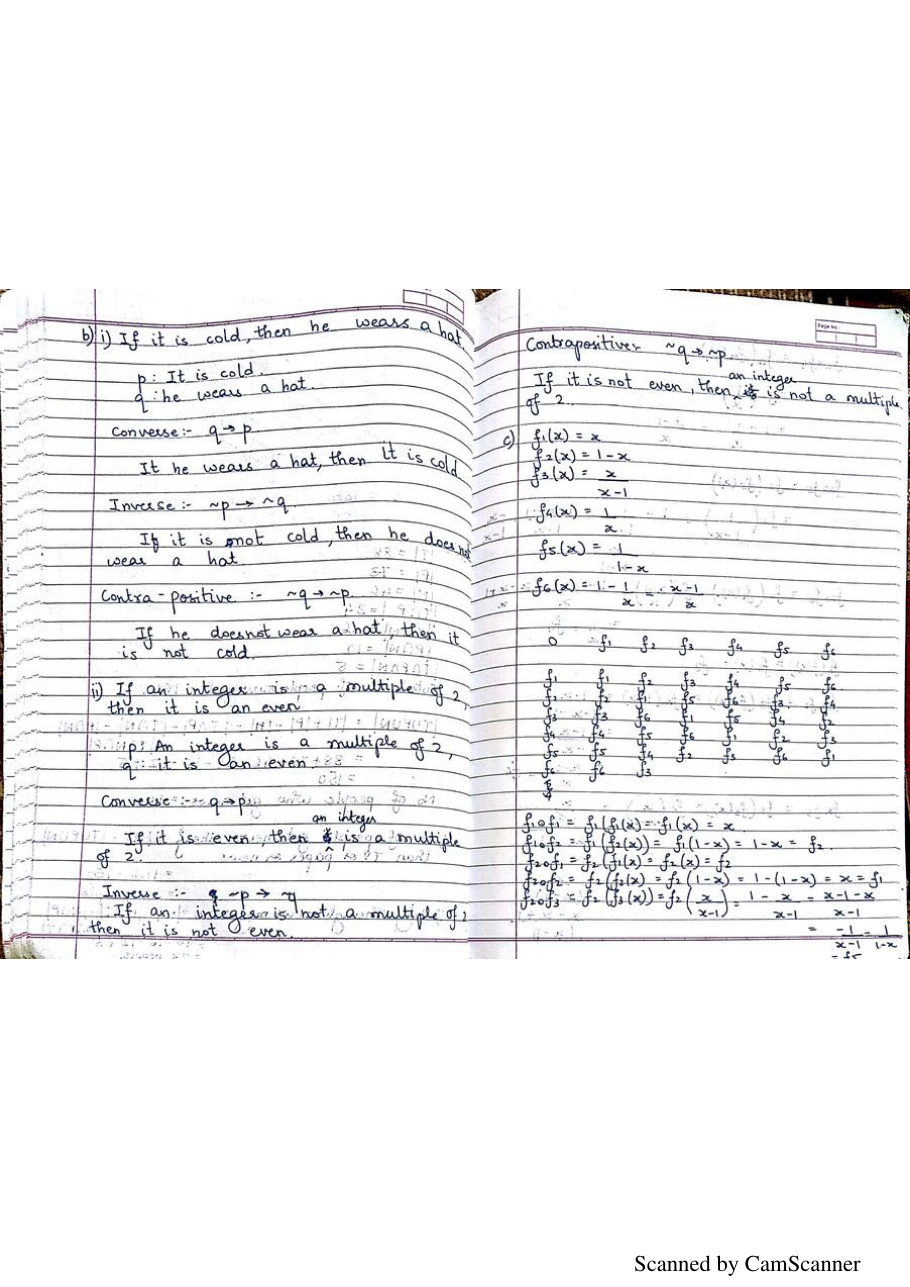 b) i) If it is cold, then he wears a hat.
p: It is cold.
q: he wears a hat.
Converse:- q→p
It he wears a hat, then It is cold
Inverse:- ~p → ~q
If it is not cold, then he does not
wear a hat.
Contra-positive :- ~q → ~p.
If he doesnot wear a hat, then it
is not cold.
ii) If an integer is a multiple of 2,
then it is an even
p: An integer is a multiple of 2,
q: it is an even.
Converse:- q→p
an integer
If it is even, then is a multiple
of 2.
Inverse :- ~p → ~q
If an integer is not a multiple of 2
then it is not even.
Page No.
Contrapositive:- ~q → ~p
an integer
If it is not even, then is not a multiple
of 2.
c) f1(x) = x
f2(x) = 1-x
f3(x) = x / x-1
f4(x) = 1 / x
f5(x) = 1 / 1-x
f6(x) = 1 - 1/x = x-1 / x
0 f1 f2 f3 f4 f5 f6
f1 f1 f2 f3 f4 f5 f6
f2 f2 f1 f5 f6 f3 f4
f3 f3 f6 f1 f5 f4 f2
f4 f4 f5 f6 f1 f2 f3
f5 f5 f4 f2 f3 f6 f1
f6 f6 f3
f1of1 = f1(f1(x) = f1(x) = x
f1of2 = f1(f2(x)) = f1(1-x) = 1-x = f2.
f2of1 = f2(f1(x) = f2(x) = f2
f2of2 = f2(f2(x) = f2(1-x) = 1-(1-x) = x = f1
f2of3 = f2(f3(x)) = f2(x / x-1) = 1 - x / x-1 = x-1-x / x-1
= -1 / x-1 = 1 / 1-x
= f5
Scanned by CamScanner